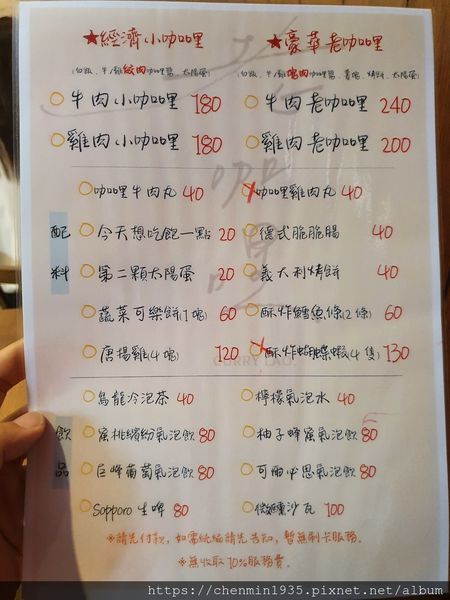 ★經濟小咖哩 ★豪華老咖哩
(白飯、牛/雞絞肉咖哩醬、太陽蛋)
牛肉小咖哩 180 牛肉老咖哩 240
雞肉小咖哩 180 雞肉老咖哩 200
配料
咖哩牛肉丸 40 咖哩雞肉丸 40
今天想吃飽一點 20 德式脆脆腸 40
第二顆太陽蛋 20 義大利烤餅 40
蔬菜可樂餅(1塊) 60 酥炸鱈魚條(2條) 60
唐揚雞(4塊) 120 酥炸蝴蝶蝦(4隻) 130
CURRY LAO.
飲品
烏龍冷泡茶 40 檸檬氣泡水 40
蜜桃繽紛氣泡飲 80 柚子蜂蜜氣泡飲 80
巨峰葡萄氣泡飲 80 可爾必思氣泡飲 80
Sapporo 生啤 80 微醺沙瓦 100
※請先付款,如需統編請先告知,暫無刷卡服務。
※無收取10%服務費。
https://chenmin1935.pixnet.net/album